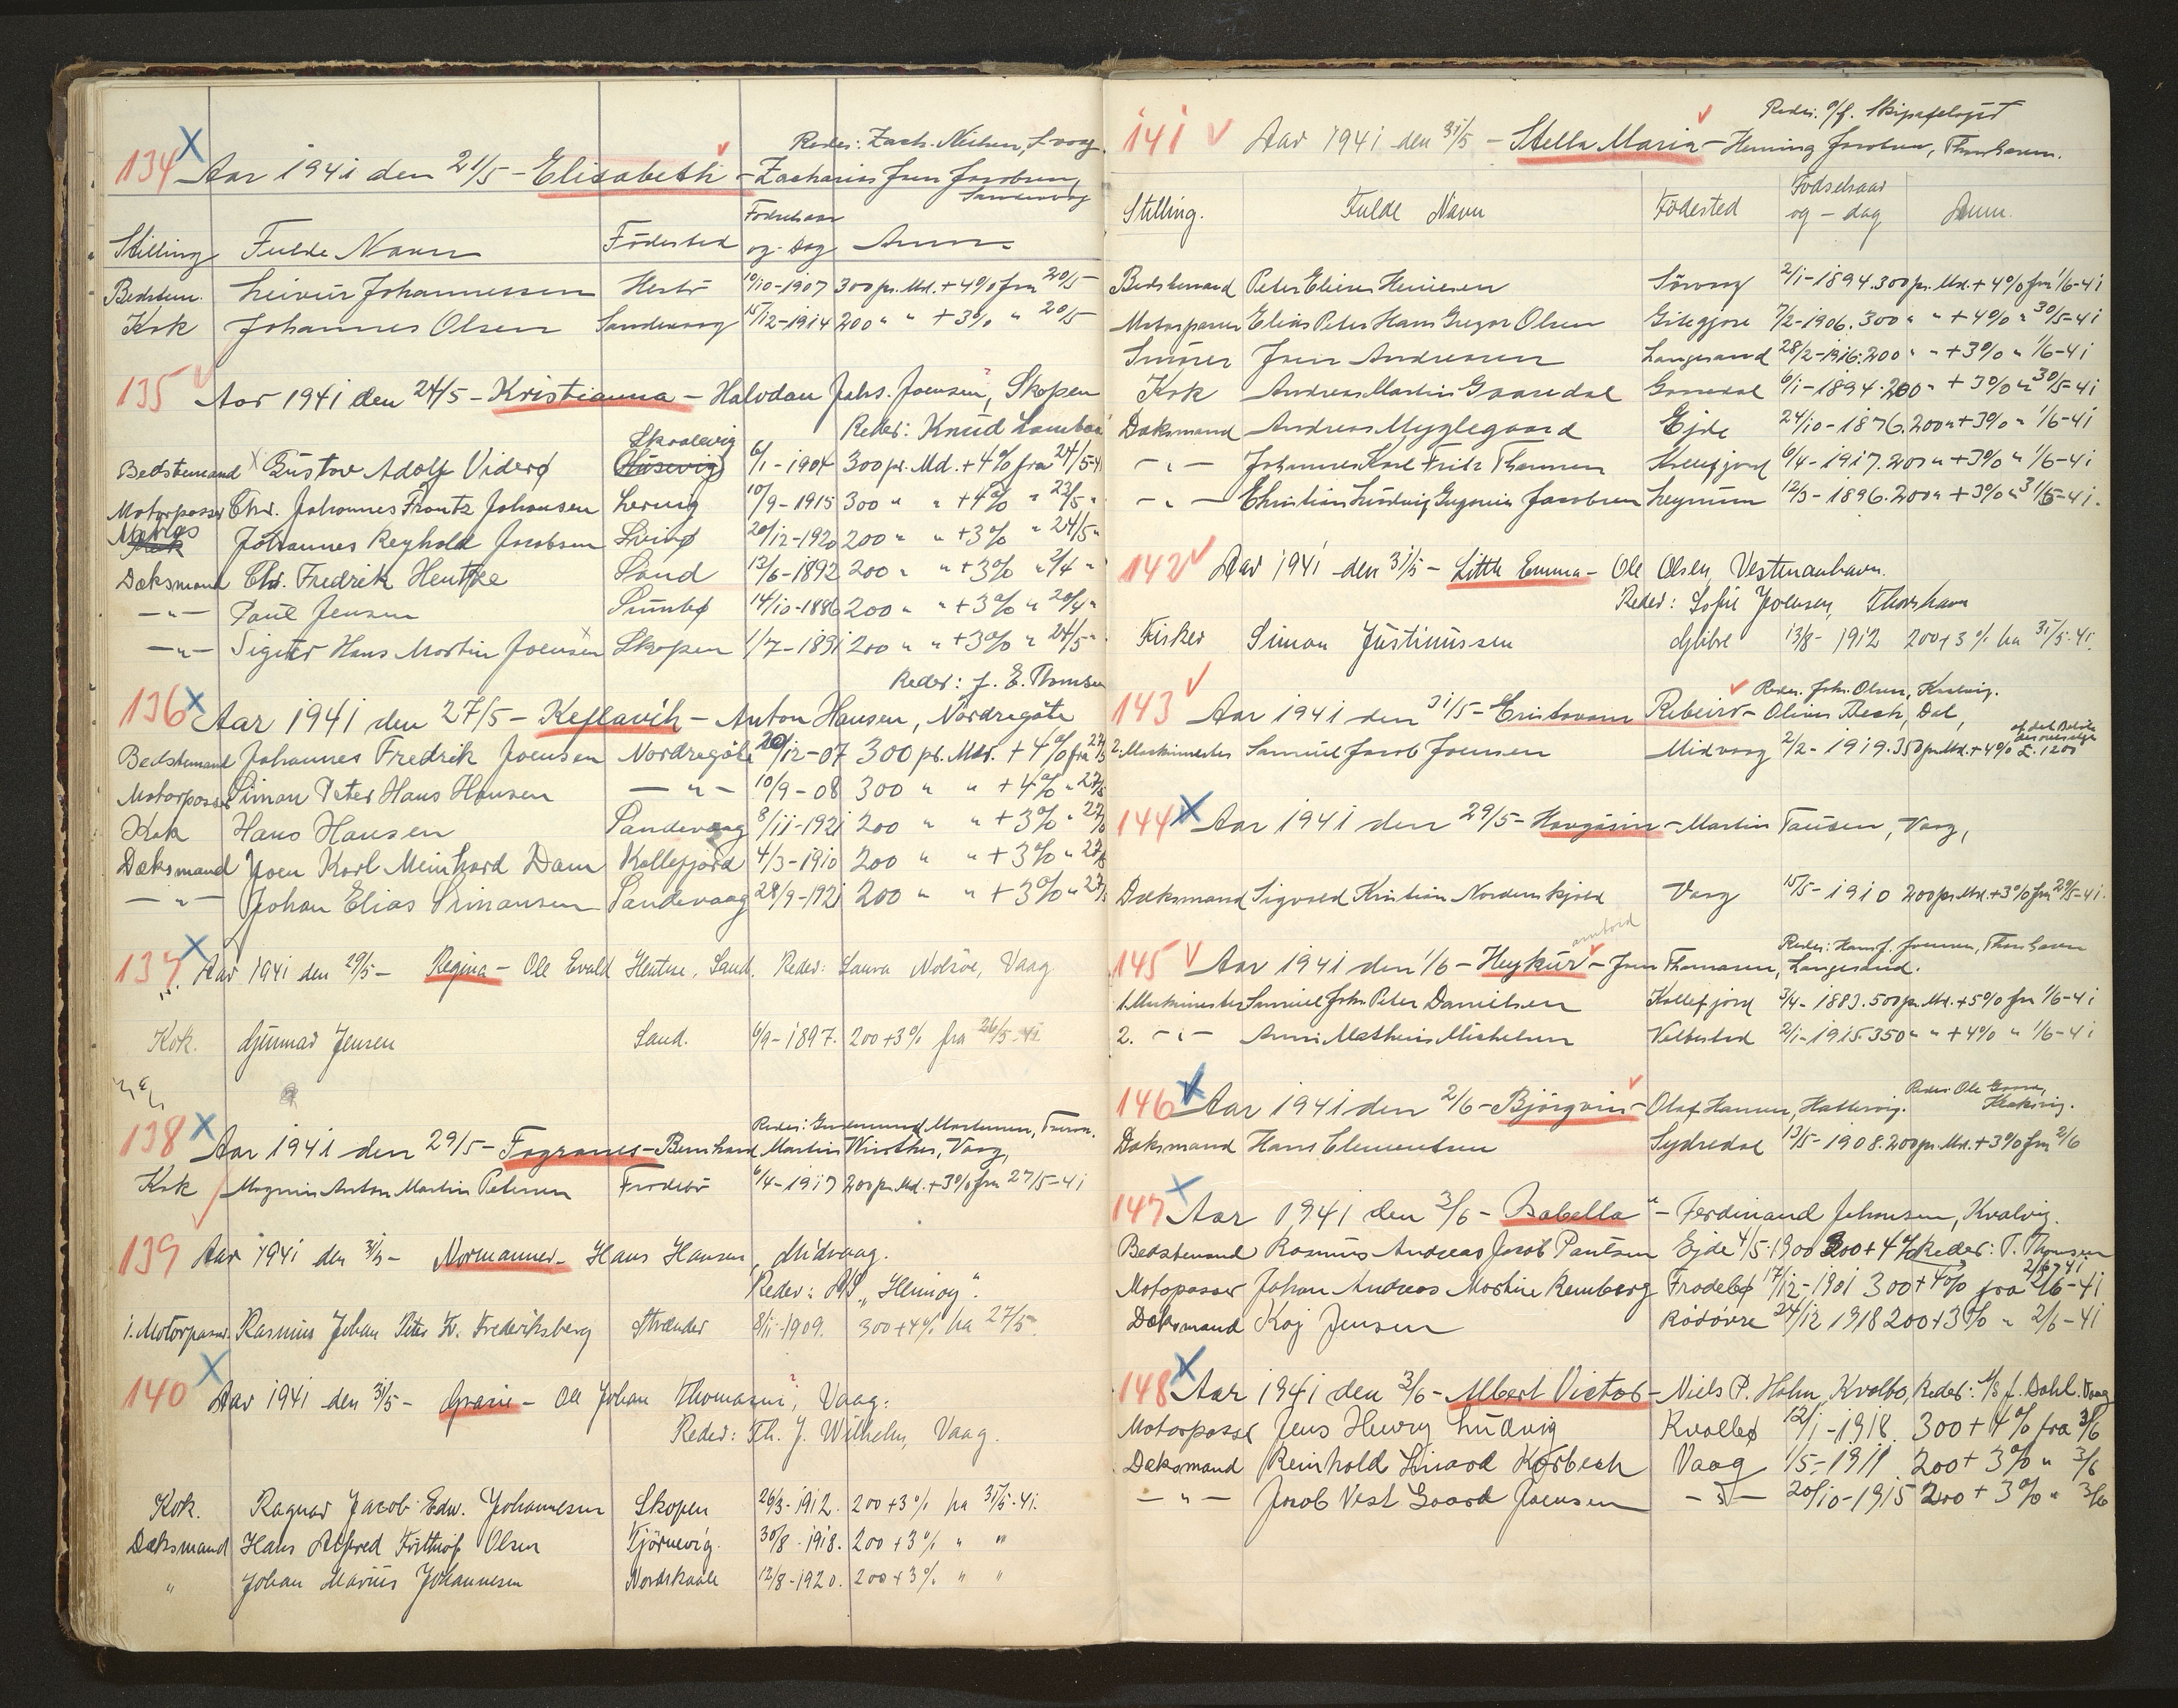 Reder: Zach. Nielsen, S.vaag.
134 Aar 1941 den 21/5 - Elisabeth - Zacharias Jens Jacobsen,
Sandevaag
Stilling Fulde Navn Födested Födselsaar og-Dag Anm.
Bedstem. Leivur Johannessen 19/10-1907 300 pr. Md. + 4% fra 20/5
Kok Johannes Olsen Sandevaag 15/12-1914 200 " " + 3% " 20/5
135 Aar 1941 den 24/5 - Kristianna - Halvdan Johs. Joensen, Skopen
Reder: Knud
Skaalevig
Bedstemand Gustav Adolf Viderø Húsevig 6/1-1904 300 pr. Md. + 4% fra 24/5-4
Motorpasser Chr. Johannes Frantz Johansen Lervig 10/9-1915 300 " " + 4% " 23/5 "
Johannes Reyhold Jacobsen Svinø 20/12-1920 200 " " + 3% " 24/5 "
Dæksmand Chr. Fredrik Hentze Sand 13/6-1892 200 " " + 3% " 2/4 "
- " - Paul Jensen Sumbø 14/10-1886 200 " " + 3% " 20/4 "
- " - Hans Martin Joensen Skopen 1/7-1891 200 " " + 3% " 24/5 "
Reder: J. E. Thomsen
136 Aar 1941 den 27/5 - Keflavik - Anton Hansen, Nordregöte
Bedstemand Johannes Fredrik Joensen Nordregöte 20/12-07 300 pr. Md. + 4% fra 27/5
Motorpasser Simon Peter Hans Hansen - " - 10/9-08 300 " " + 4% " 27/5
Kok Hans Hansen Sandevaag 8/11-1921 200 " " + 3% " 27/5
Dæksmand Joen Karl Meinhard Dam Kollefjord 4/3-1910 200 " " + 3% " 27/5
- " - Johan Elias Simonsen Sandevaag 28/9-1921 200 " " + 3% " 27/5
137 Aar 1941 den 29/5 - Regina - Ole Evald Hentze, Sand. Reder: Laura Nolsöe, Vaag
Kok. Gunnar Jensen Sand. 6/9-1897. 200+3% fra 26/5-41
Reder: Gudmund Mortensen,
138 Aar 1941 den 29/5 - Fagranes - Bernhard Martin Winther, Vaag,
Kok Magnus Anton Martin Petersen Frodebö 6/4-1917 200 pr. Md. + 3% fra 27/5-41
139 Aar 1941 den 31/5 - Normanner - Hans Hansen, Midvaag.
Reder: A/S
1. Motorpasser Rasmus Johan Peter Fr. Frederiksberg Strænder 8/11-1909. 300+4% fra 27/5.
140 Aar 1941 den 31/5 - Grazie - Ole Johan Thomasen, Vaag.
Reder: Th. J. Wilhelm, Vaag.
Kok. Ragnar Jacob Edw. Johannesen Skopen 26/3-1912. 200+3% fra 31/5-41.
Dæksmand Hans Alfred Frithiof Olsen Tjörnevig. 30/8-1918. 200+3% " "
" Johan Marius Johannesen Nordskaale 12/8-1920. 200+3% " "
Reder: P/f. Skipafelagid
141 Aar 1941 den 31/5 - Stella Maria - Heming Jacobsen, Thorshavn.
Stilling. Fulde Navn Födested Födselsaar og-dag Anm.
Bedstemand Peter Elieser Heinesen Sörvaag 2/1-1894. 300 pr. Md. + 4% fra 1/6-41
Motorpasser Elias Peter Hans Gregor Olsen Gitegjov 7/2-1906. 300 " " + 4% " 30/5-41
Smörer Joen Andreasen Langesand 28/2-1916. 200 " " + 3% " 1/6-41
Kok Andreas Martin Gaasedal Gaasedal 6/1-1894. 200 " + 3% " 30/5-41
Dæksmand Andreas Myglegaard Ejde 24/10-1876. 200 " + 3% " 1/6-41
- " - Johannes Karl Fritz Thomsen Kollefjord 6/4-1917. 200 " + 3% " 1/6-41
- " - Christian Ludvig Jacobsen Leynum 12/3-1896. 200 " + 3% " 31/5-41.
142 Aar 1941 den 31/5 - Little Emma - Ole Olsen, Vestmanhavn.
Reder: Sofie Joensen, Thorshavn
Fisker Simon Justinussen Glibre 13/8-1912 200+3% fra 31/5-41.
Reder: Johs. Olsen, Kvalvig.
143 Aar 1941 den 31/5 - Cristovam Ribeiro - Oliver Bech, Dal,
2. Maskinmester Samuel Jacob Joensen Midvaag 2/2-1919. 350 pr. Md. + 4% £. 1200
144 Aar 1941 den 29/5 - Havgásin - Martin Tausen, Vaag,
Dæksmand Sigvald Kristian Nordenskjold Vaag 15/5-1910 200 pr. Md. + 3% fra 29/5-41.
Reder: Hans J. Joensen, Thorshavn
145 Aar 1941 den 1/6 - Heykur - Jens Thomasen, Langesand.
1. Maskinmester Samuel Johs. Peter Danielsen Kollefjord 3/4-1883. 500 pr. Md. + 5% fra 1/6-41
2. - " - Mathias Michelsen Velbestad 2/1-1915. 350 " " + 4% " 1/6-41
146 Aar 1941 den 2/6 - Björgvin - Olaf Hansen, Hattervig. Reder: Ole Klaksvig.
Dæksmand Hans Clementsen Sydredal 13/5-1908. 200 pr. Md. + 3% fra 2/6
147 Aar 1941 den 3/6 - Isabella - Ferdinand Johansen, Kvalvig.
Bedstemand Rasmus Andreas Jacob Poulsen Ejde 4/5-1900 300+4% Reder: T. Thomsen
2/6-41
Motopasser Johan Andreas Martin Remberg Frodebø 17/12-1901 300+4% fra 2/6-41
Dæksmand Kaj Jensen Rødovre 24/12 1918 200+3% " 2/6-41
148 Aar 1941 den 3/6 - Albert Victor - Niels P. Holm, Kvalbø, Reder: A/S J. Dahl. Vaag
Motorpasser Jens Henry Ludvig Kvalbø 12/1-1918. 300+4% fra 3/6
Dæksmand Reinhold Kørbech Vaag 1/5-1911 200+3% " 3/6
- " - Jacob Vest Gaard Joensen - " - 20/10-1915 200+3% " 3/6